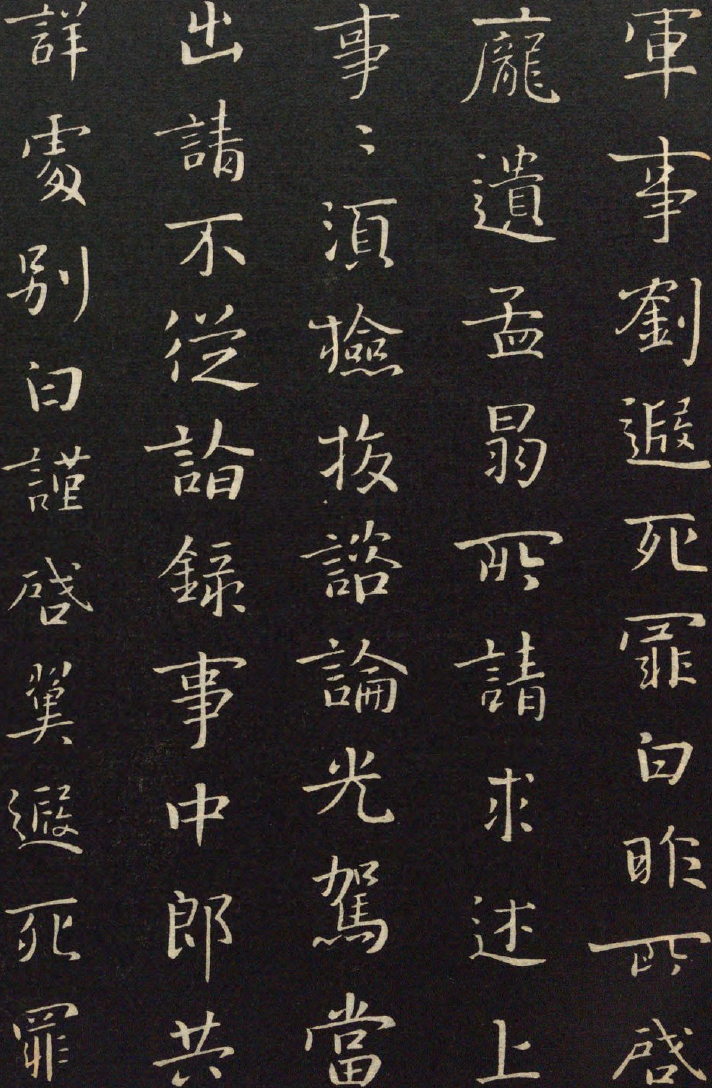 軍事劉遐死罪白昨所啓
龐遺孟昺所請求述上
事〻須檢校諮論光駕當
出請不從詣錄事中郎共
詳處別白謹啓冀遐死罪